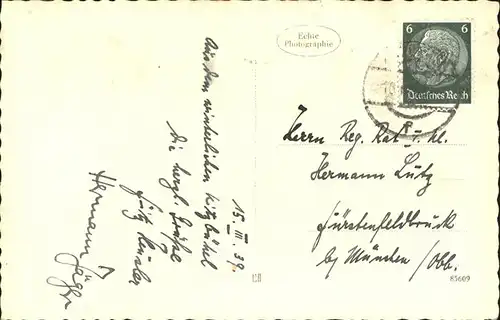 15. III. 39.
Aus dem winterlichen Kitzbühel
die herzl. Grüße
Fritz
Hermann Jäger
Echte
Photographie
6 6
Deutsches Reich
Herrn Reg. Rat
Hermann Lutz
Fürstenfeldbruck
bei München / Obb.
83609